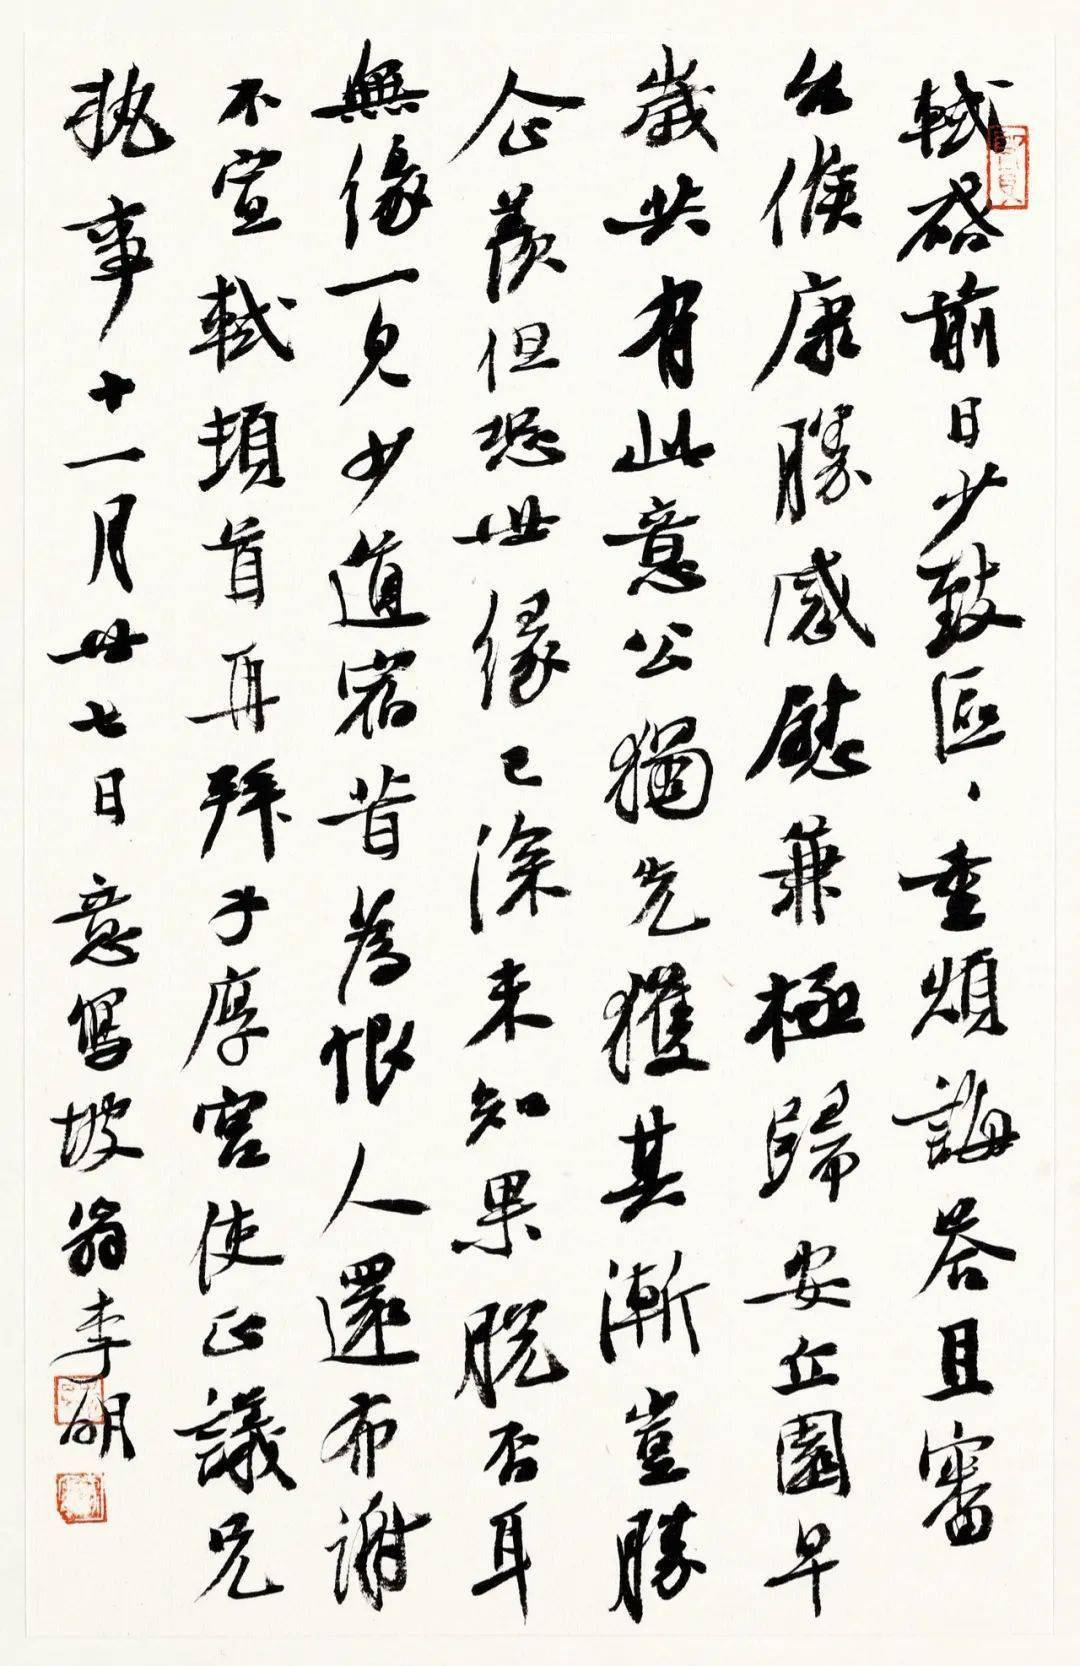 軾啓前日少致區〻重煩誨荅且審
台候康勝感慰兼極歸安丘園早
歲共有此意公獨先獲其漸豈勝
企羨但恐世緣已深未知果脱否耳
無緣一見少道宿昔為恨人還布謝
不宣軾頓首再拜子厚宫使正議兄
執事十一月廿七日意寫坡翁李明